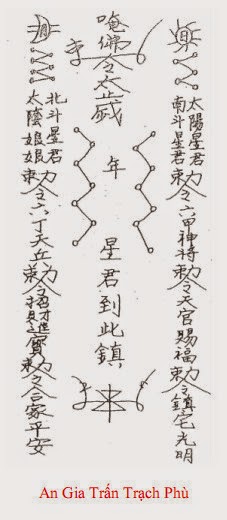 日
太陽星君
南斗星君
勅令六甲神將勅令天官賜福勅令鎮宅光明
唵佛令太歲
年
星君到此鎮
月
北斗星君
太陰娘娘
勅令六丁天兵勅令招財進寶勅令合家平安
An Gia Trấn Trạch Phù